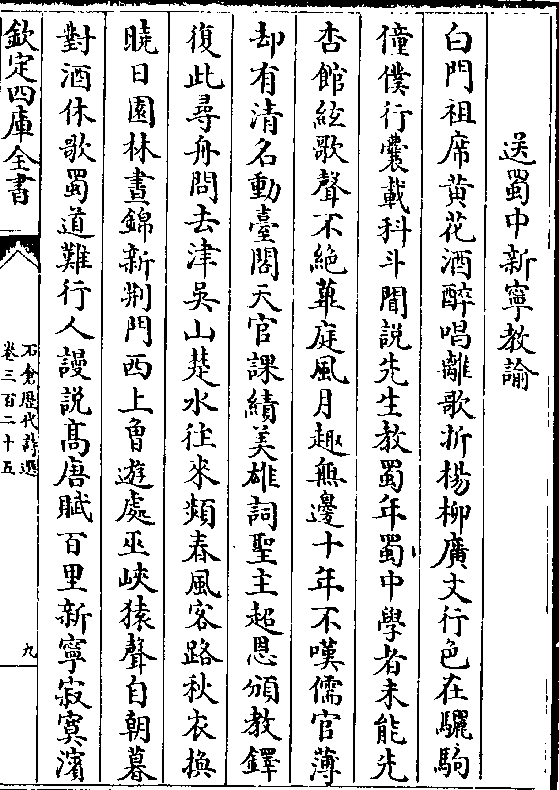 送蜀中新寧教諭
白門祖席黄花酒醉唱離歌折楊柳廣文行色在驪駒
僮僕行囊載科斗聞説先生教蜀年蜀中學者未能先
杏館絃歌聲不絶蓽庭風月趣無邊十年不嘆儒官薄
却有清名動臺閣天官課績美雄詞聖主起恩頒教鐸
復此尋舟問去津吳山楚水往來頻春風客路秋衣換
曉日園林晝錦新荆門西上曾遊處巫峽猿聲自朝暮
對酒休歌蜀道難行人謾説髙唐賦百里新寧寂寞濱
欽定四庫全書
石倉歴代詩選
卷三百二十五
九